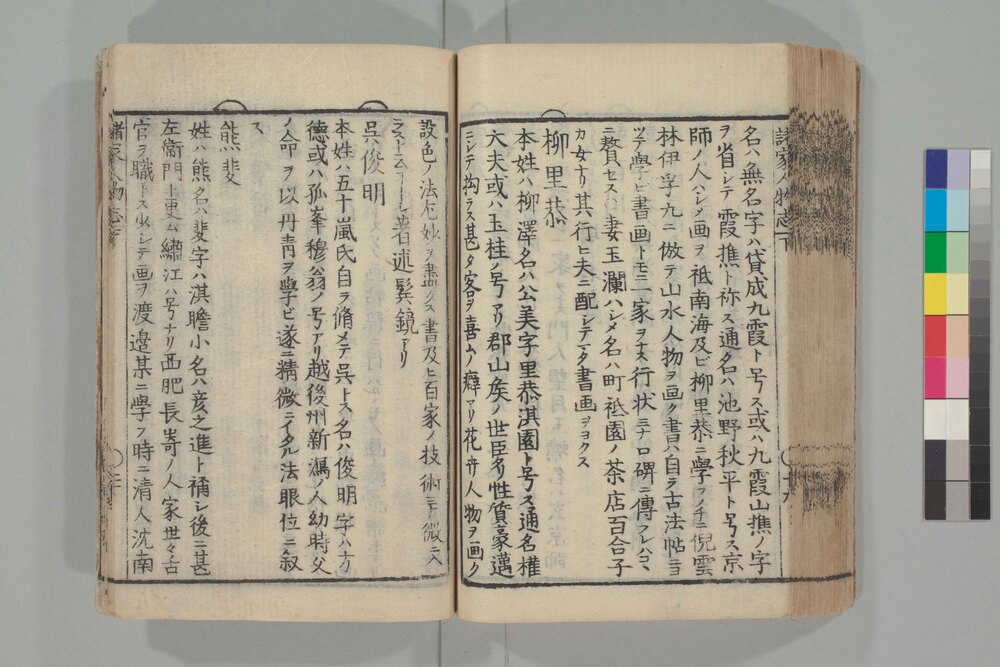 諸家人物志下
名ハ無名字ハ貸成九霞ト号ス或ハ九霞山樵ノ字
ヲ省シテ霞樵ト称ス通名ハ池野秋平ト号ス京
師ノ人ハシメ画ヲ祗南海及ビ柳里恭ニ學フ後チニ倪雲
林伊孚九ニ倣テ山水人物ヲ画ク書ハ自ラ古法帖ニヨ
ツテ學ビ書画トモニ一家ヲナス行状ニナロ碑ニ傳フレハコヽ
ニ贅セス○妻玉瀾ハシメ名ハ町祗園ノ茶店百合子
カ女ナリ其行ヒ夫ニ配シテマタ書画ヲヨクス
柳里恭
本姓ハ柳澤名ハ公美字里恭淇園ト号ス通名權
大夫或ハ玉桂ノ号アリ郡山矦ノ世臣ナリ性質豪邁
ニシテ拘ラス甚タ客ヲ喜ムノ癖アリ花卉人物ヲ画ク
設色ノ法尤妙ヲ盡クス書及ヒ百家ノ技術ニ微ニ入
著述髩鏡アリ
呉俊明
本姓ハ五十嵐氏自ラ脩メテ呉トス名ハ俊明字ハ方
德或ハ孤峯穆翁ノ号アリ越後州新潟ノ人幼時父
ノ命ヲ以丹青ヲ學ビ遂ニ精微ニイタル法眼位ニ叙
ス
熊斐
姓ハ熊名ハ斐字ハ淇瞻小名ハ彦之進ト稱シ後ニ甚
左衛門ト更ム繡江ハ号ナリ西肥長嵜ノ人家世々舌
官ヲ職トス少シテ画ヲ渡邉某ニ學フ時ニ清人沈南
諸家人物志下